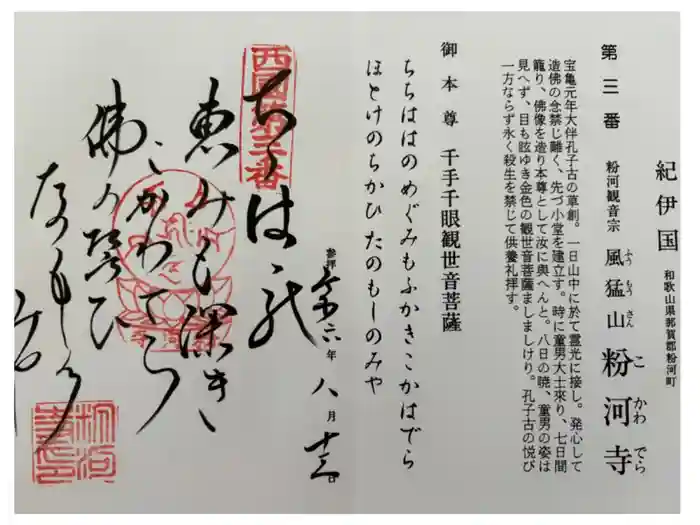 紀伊国 和歌山県那賀郡粉河町
第三番 粉河観音宗 風猛山 粉河寺
ふう もう さん こ かわ でら
宝亀元年大伴孔子古の草創。一日山中に於て霊光に接し。発心して
造佛の念禁じ難く、先づ小堂を建立す。時に童男大士來り、七日間
籠り、佛像を造り本尊として汝に與へんと。八日の暁、童男の姿は
見へず、目も眩ゆき金色の観世音菩薩ましましけり。孔子古の悦び
一方ならず永く殺生を禁じて供養礼拝す。
御本尊 千手千眼観世音菩薩
ちちははのめぐみもふかきこかはでら
ほとけのちかひたのもしのみや
参拝 令和六年 八月 十三日
西國第三番
ちゝはゝの
恵みも深き
こかわでら
佛の誓ひ
たのもし